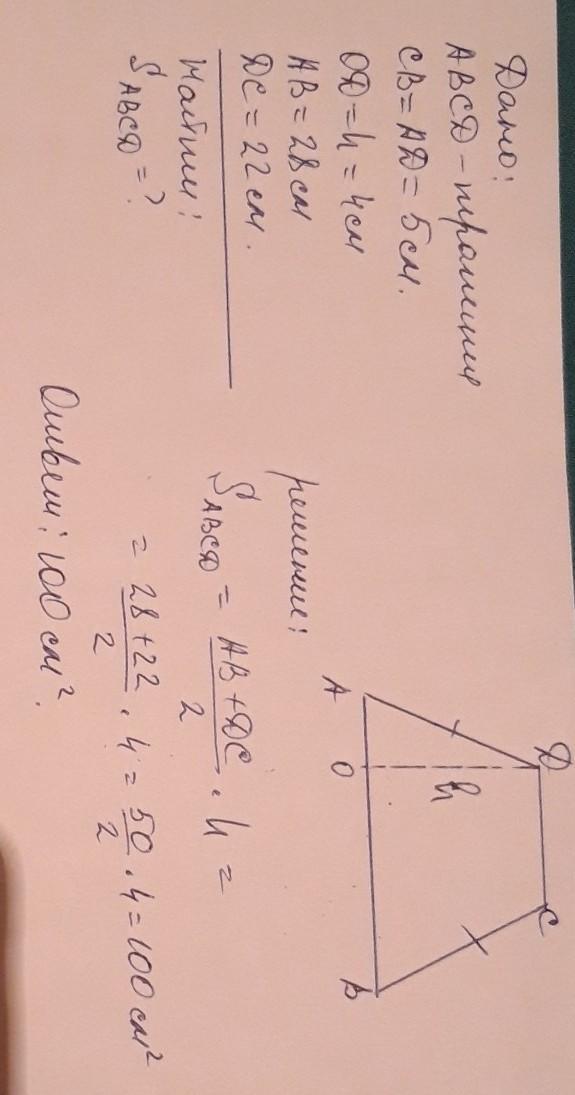 Дано:
ABCD - трапеция
CB = AD = 5 см.
OD = h = 4 см
AB = 28 см
DC = 22 см.
Найти:
S ABCD = ?
D
C
h
A
O
B
решение:
S ABCD = AB + DC / 2 · h =
= 28 + 22 / 2 · 4 = 50 / 2 · 4 = 100 см²
Ответ: 100 см².